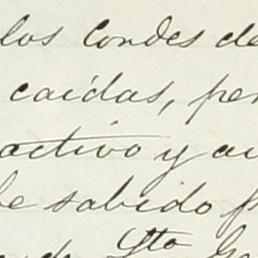 los Condes de
caídas, per
activo y au
be sabido p
de Sto